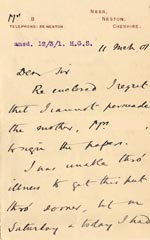 Mr.
B
NESS,
NESTON,
CHESHIRE.
TELEPHONE: 28 NESTON.
ansd. 12/3/1. H.G.S.
11 March 01
Dear Sir
Re enclosed I regret
that I cannot persuade
the mother, Mrs
to sign the papers.
I was unable thro'
illness to get this put
thro' sooner, but on
Saturday & today I had